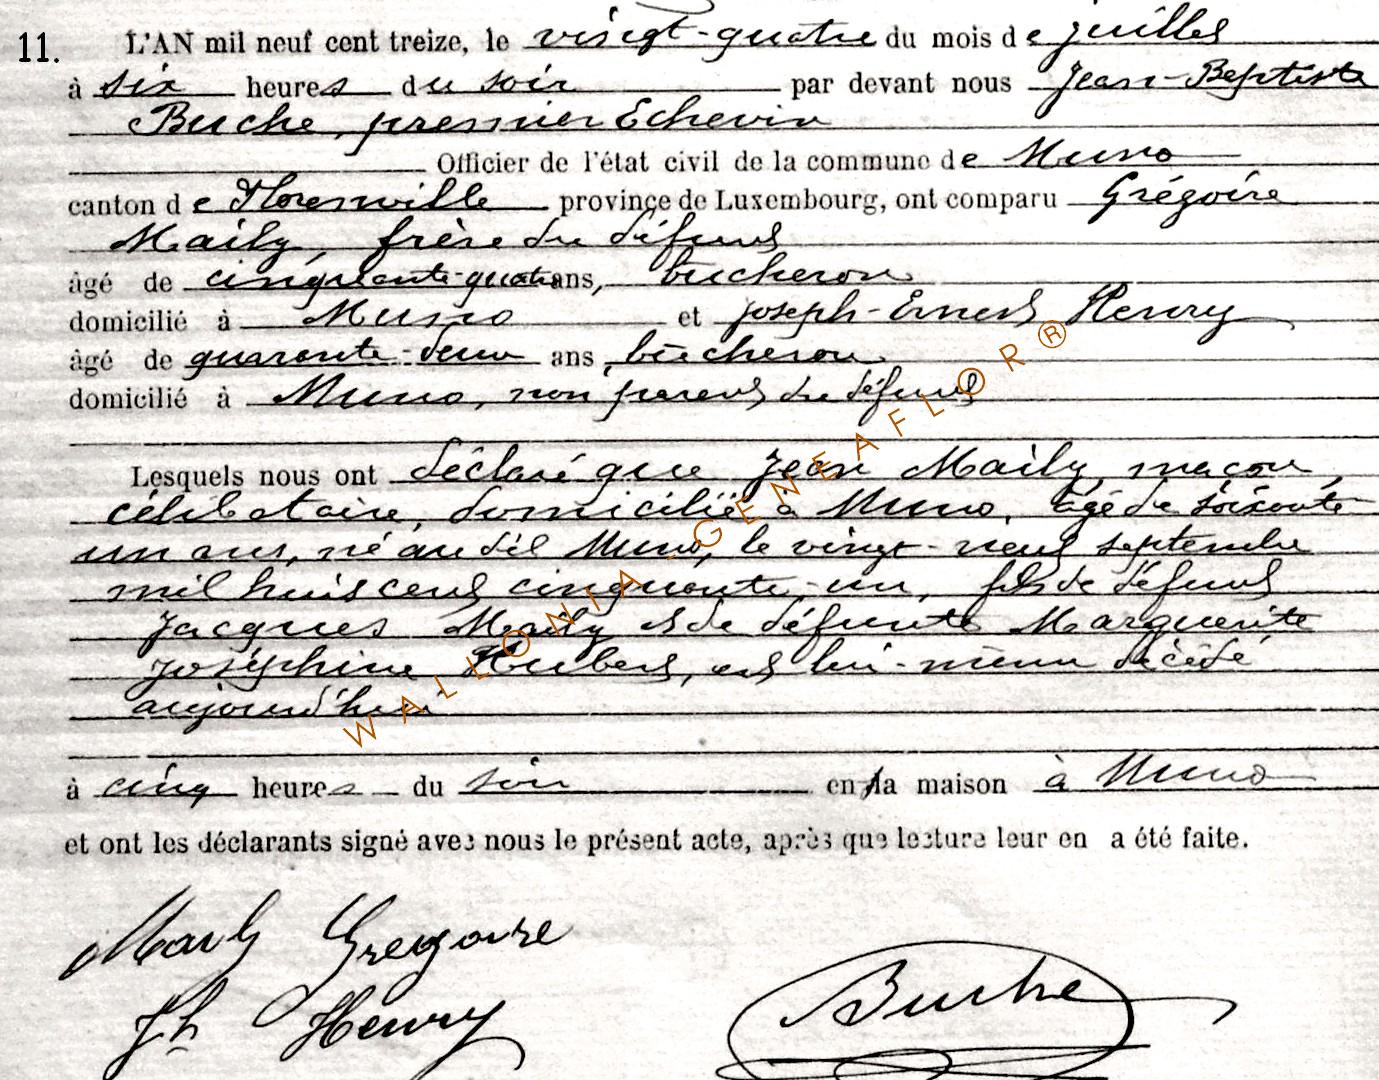 11. L'AN mil neuf cent treize, le vingt-quatre du mois de juillet
à six heures du soir par devant nous Jean-Baptiste
Buche, premier Echevin
Officier de l'état civil de la commune de Muno
canton de Florenville province de Luxembourg, ont comparu Grégoire
Maily, frère du défunt
âgé de cinquante-quatre ans, bûcheron
domicilié à Muno et Joseph-Ernest Henry
âgé de quarante-deux ans, bûcheron
domicilié à Muno, non parent du défunt
Lesquels nous ont déclaré que Jean Maily, maçon,
célibataire, domicilié à Muno, âgé de soixante
un ans, né au dit Muno, le vingt-neuf septembre
mil huit cent cinquante-un, fils de défunt
Jacques Maily et de défunte Marguerite
Joséphine Hubert, est lui-même décédé
aujourd'hui
à cinq heures du soir en la maison à Muno
et ont les déclarants signé avec nous le présent acte, après que lecture leur en a été faite.
Maily Gregoire
Jh Henry
Buche
WALLONIA-GENEAFLOR®